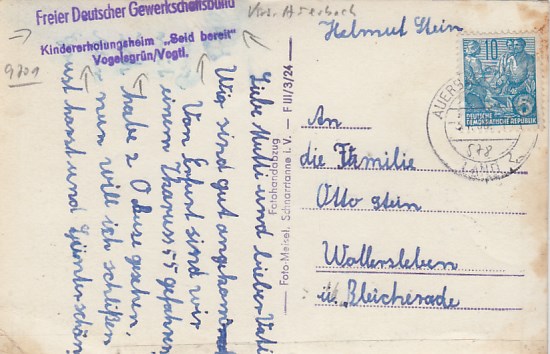 Freier Deutscher Gewerkschaftsbund
Kindererholungsheim „Seid bereit"
Vogelsgrün/Vogtl.
Krs. Auerbach
9701
Liebe Mutti und lieber Vati
Wir sind gut angekommen
Von Erfurt sind wir
einem Ikarus 55 gefahren
habe 2 O Busse gesehen.
nun will ich schließen
und
Fotohandabzug
Foto-Meisel, Schnarrtanne i. V. – F III/3/24 –
Helmut Stein
10
5
DEUTSCHE
DEMOKRATISCHE REPUBLIK
578
(LAND)
An
die Familie
Otto Stein
Wallersleben
ü. Bleicherode